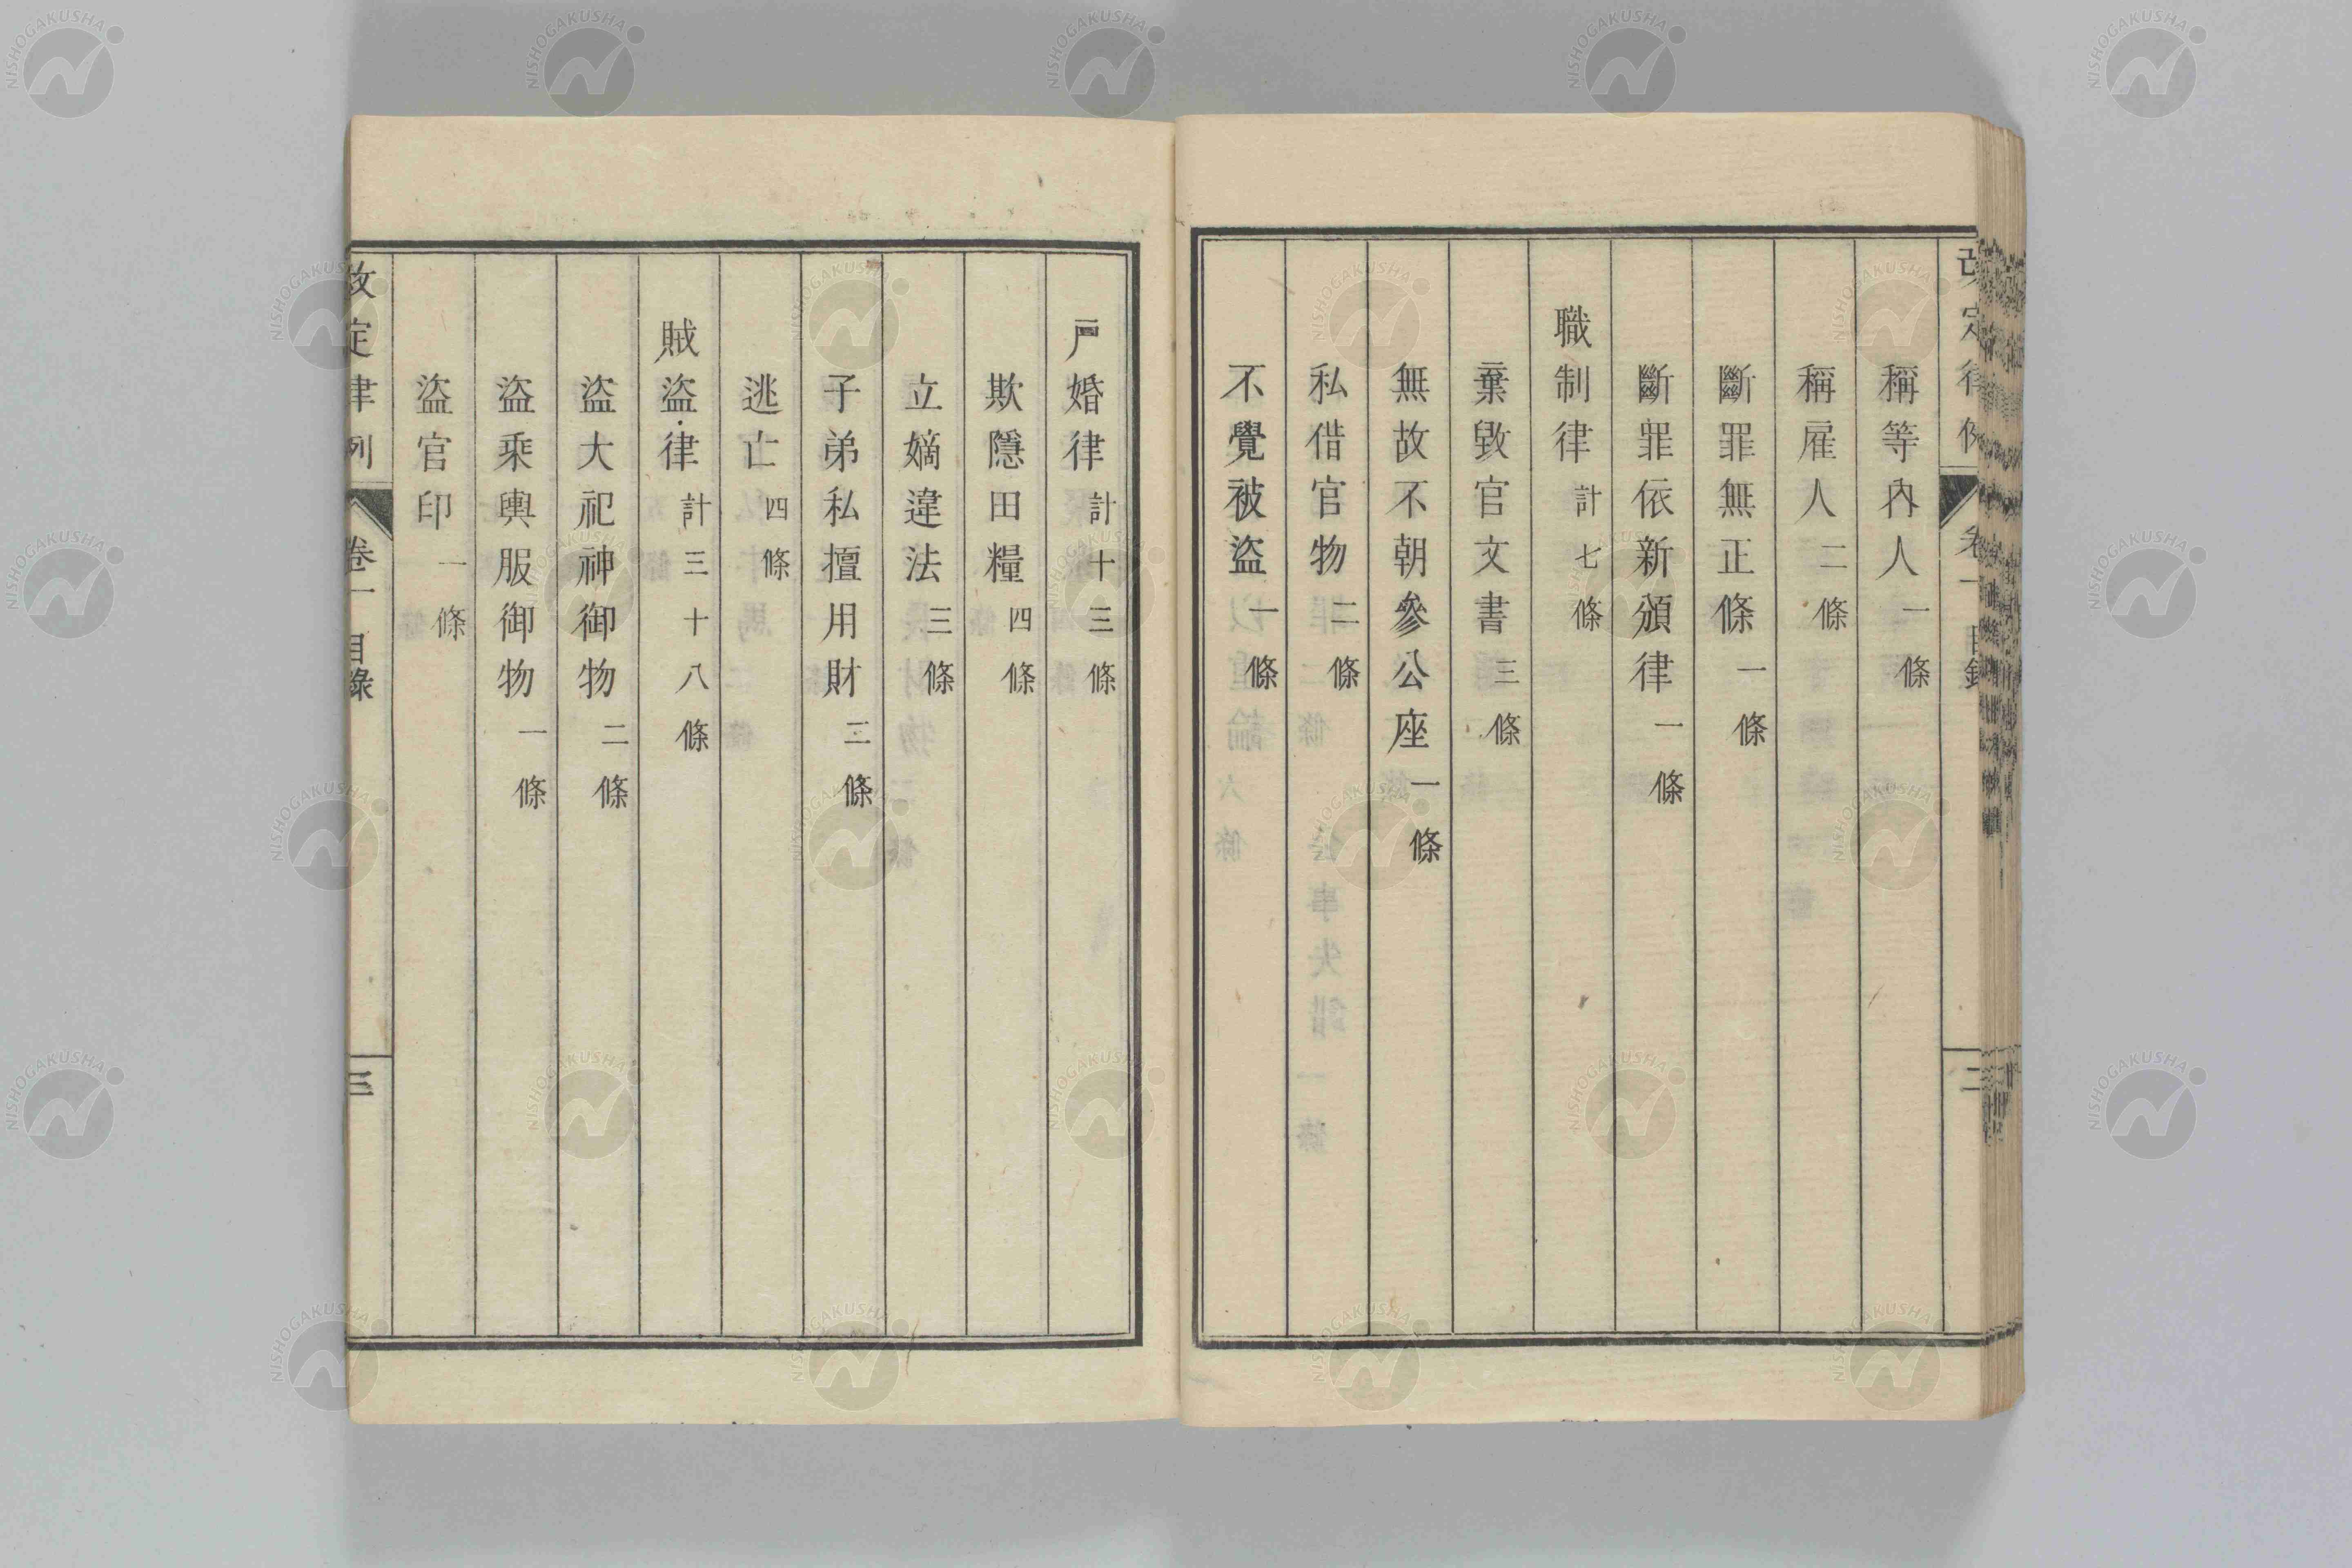 稱等內人一條
稱雇人二條
斷罪無正條一條
斷罪依新頒律一條
職制律計七條
棄毀官文書三條
無故不朝參公座一條
私借官物二條
不覺被盜一條
戸婚律計十三條
欺隱田糧四條
立嫡違法三條
子弟私擅用財二條
逃亡四條
賊盜律計三十八條
盜大祀神御物二條
盜乘輿服御物一條
盜官印一條
改定律例 卷一 目錄 三
NISHOGAKUSHA